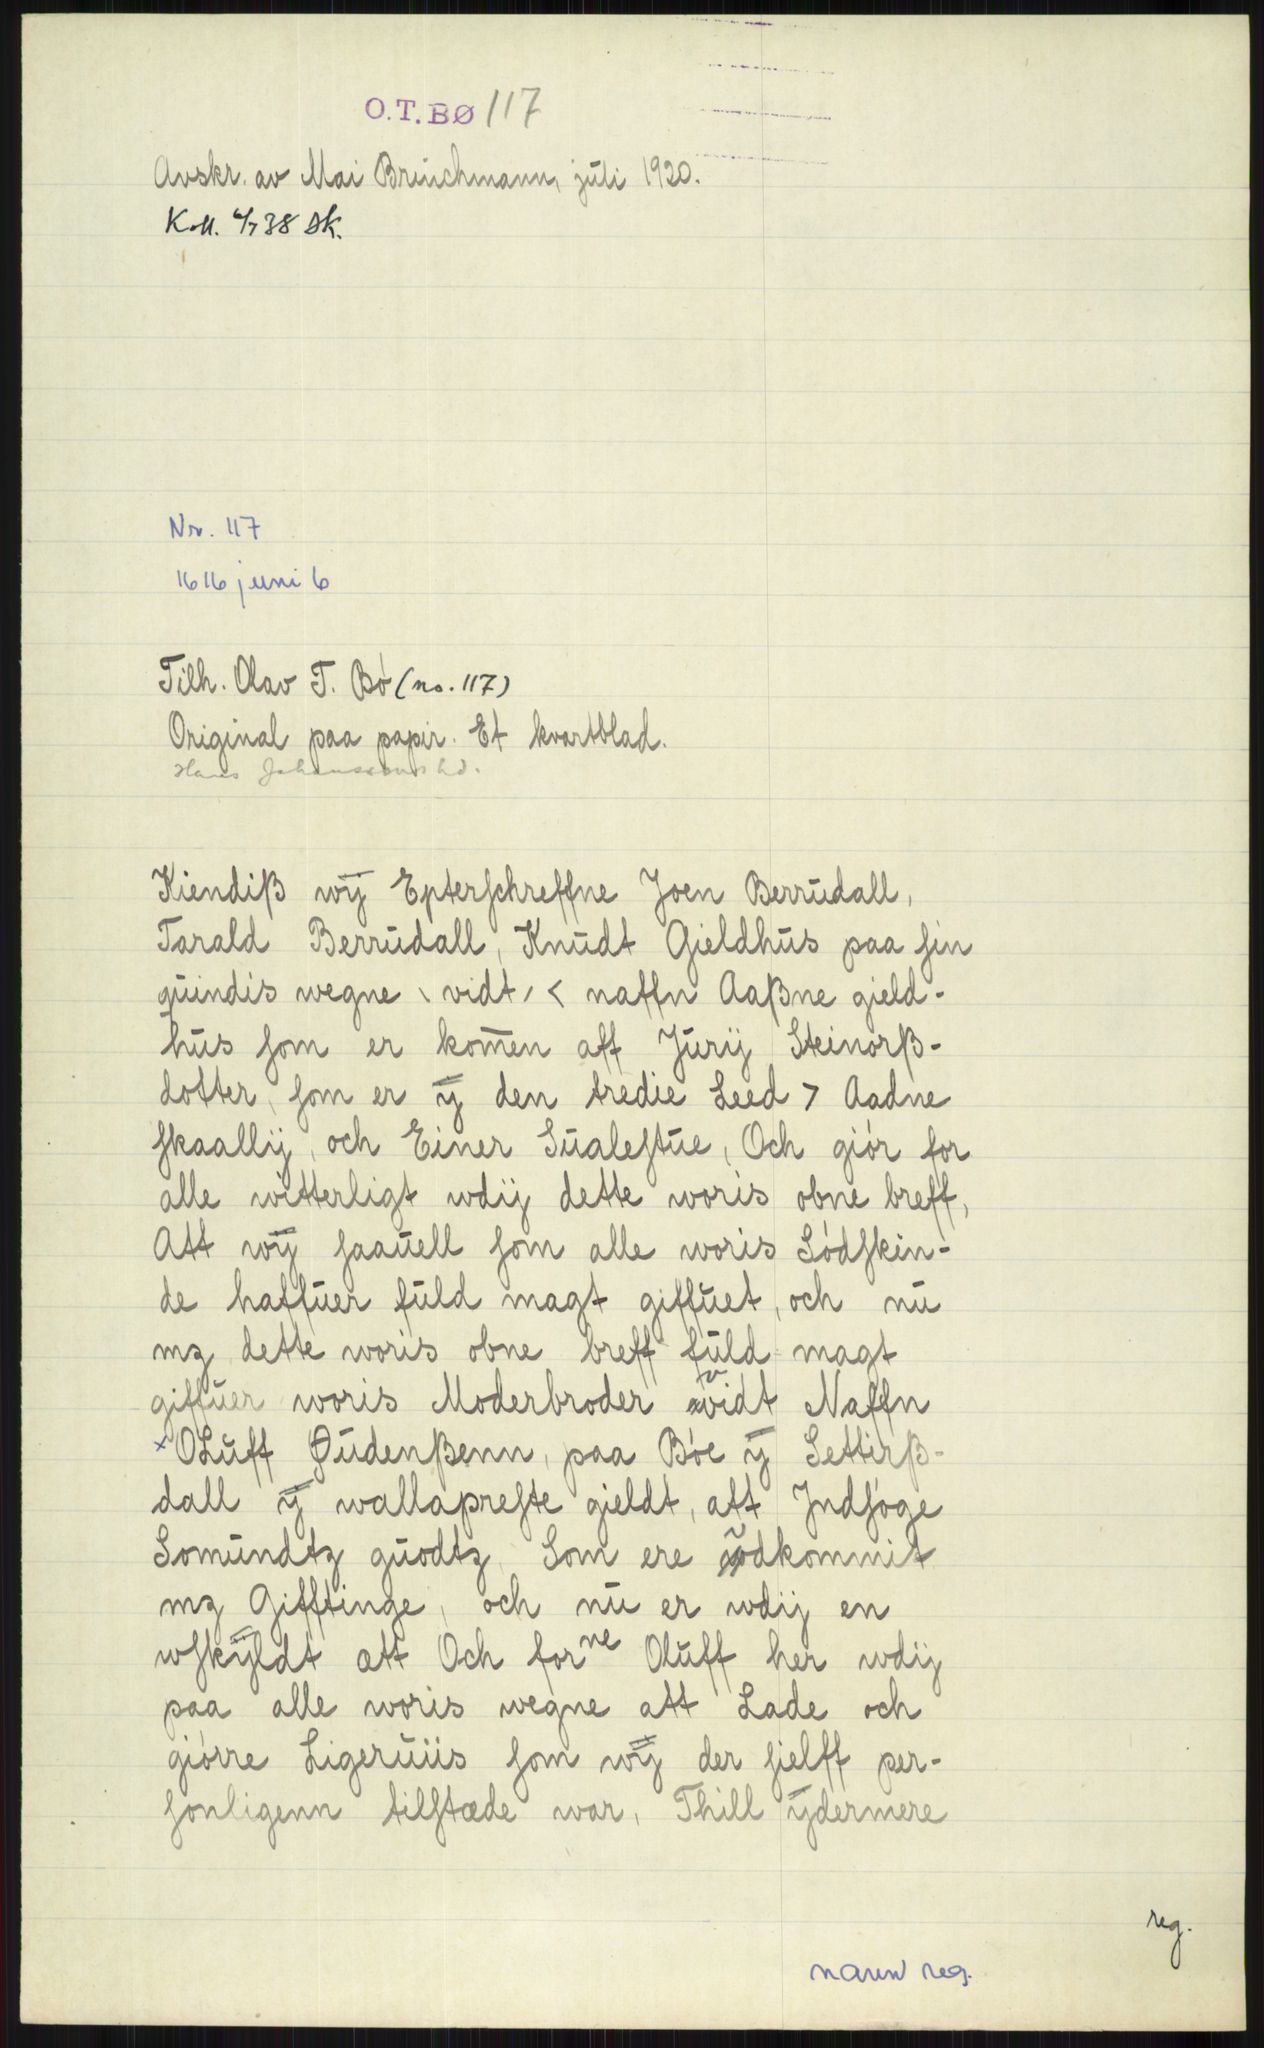 O.T.BØ/117
Avskr. av Mai Bruchmann, juli 1920.
Koll. 4/7 38 Sk.
Nr. 117
1616 juni 6
Tilh. Olav T. Bö (no. 117)
Original paa papir. Et kvartblad.
Hans Johanssøns hd.
Kiendiß wij Epterſchreffne Joen Berrudall,
Tarald Berrudall, Knudt Gieldhus paa ſin
quindis wegne, vidt, < naffn Aaßne gield-
hus ſom er kom̄en aff Jurij Steinorß-
dotter, ſom er ÿ den tredie Leed > Aadne
ſkaallij, och Einer Sualeſtue, Och giór for
alle witterligt wdij dette woris obne breff,
Att wij ſaauell ſom alle woris Sódſkin-
de haffuer fuld magt giffuet, och nu
mz dette woris obne breff fuld magt
giffuer woris Moderbroder vidt Naffn
× OLuff Øudenßenn, paa Bóe ÿ Settirß-
dall ÿ wallapreſte gieldt, att Jndſóge
Somundtz guodtz, Som ere údkommit
mz Gifftinge, och nu er wdij en
wſkÿldt ått Och forne Oluff her wdij
paa alle woris wegne att Lade och
giórre Ligeruiis ſom wij der ſielff per-
ſonligenn tilſtæde war, Thill ÿdermere
reg.
navn reg.